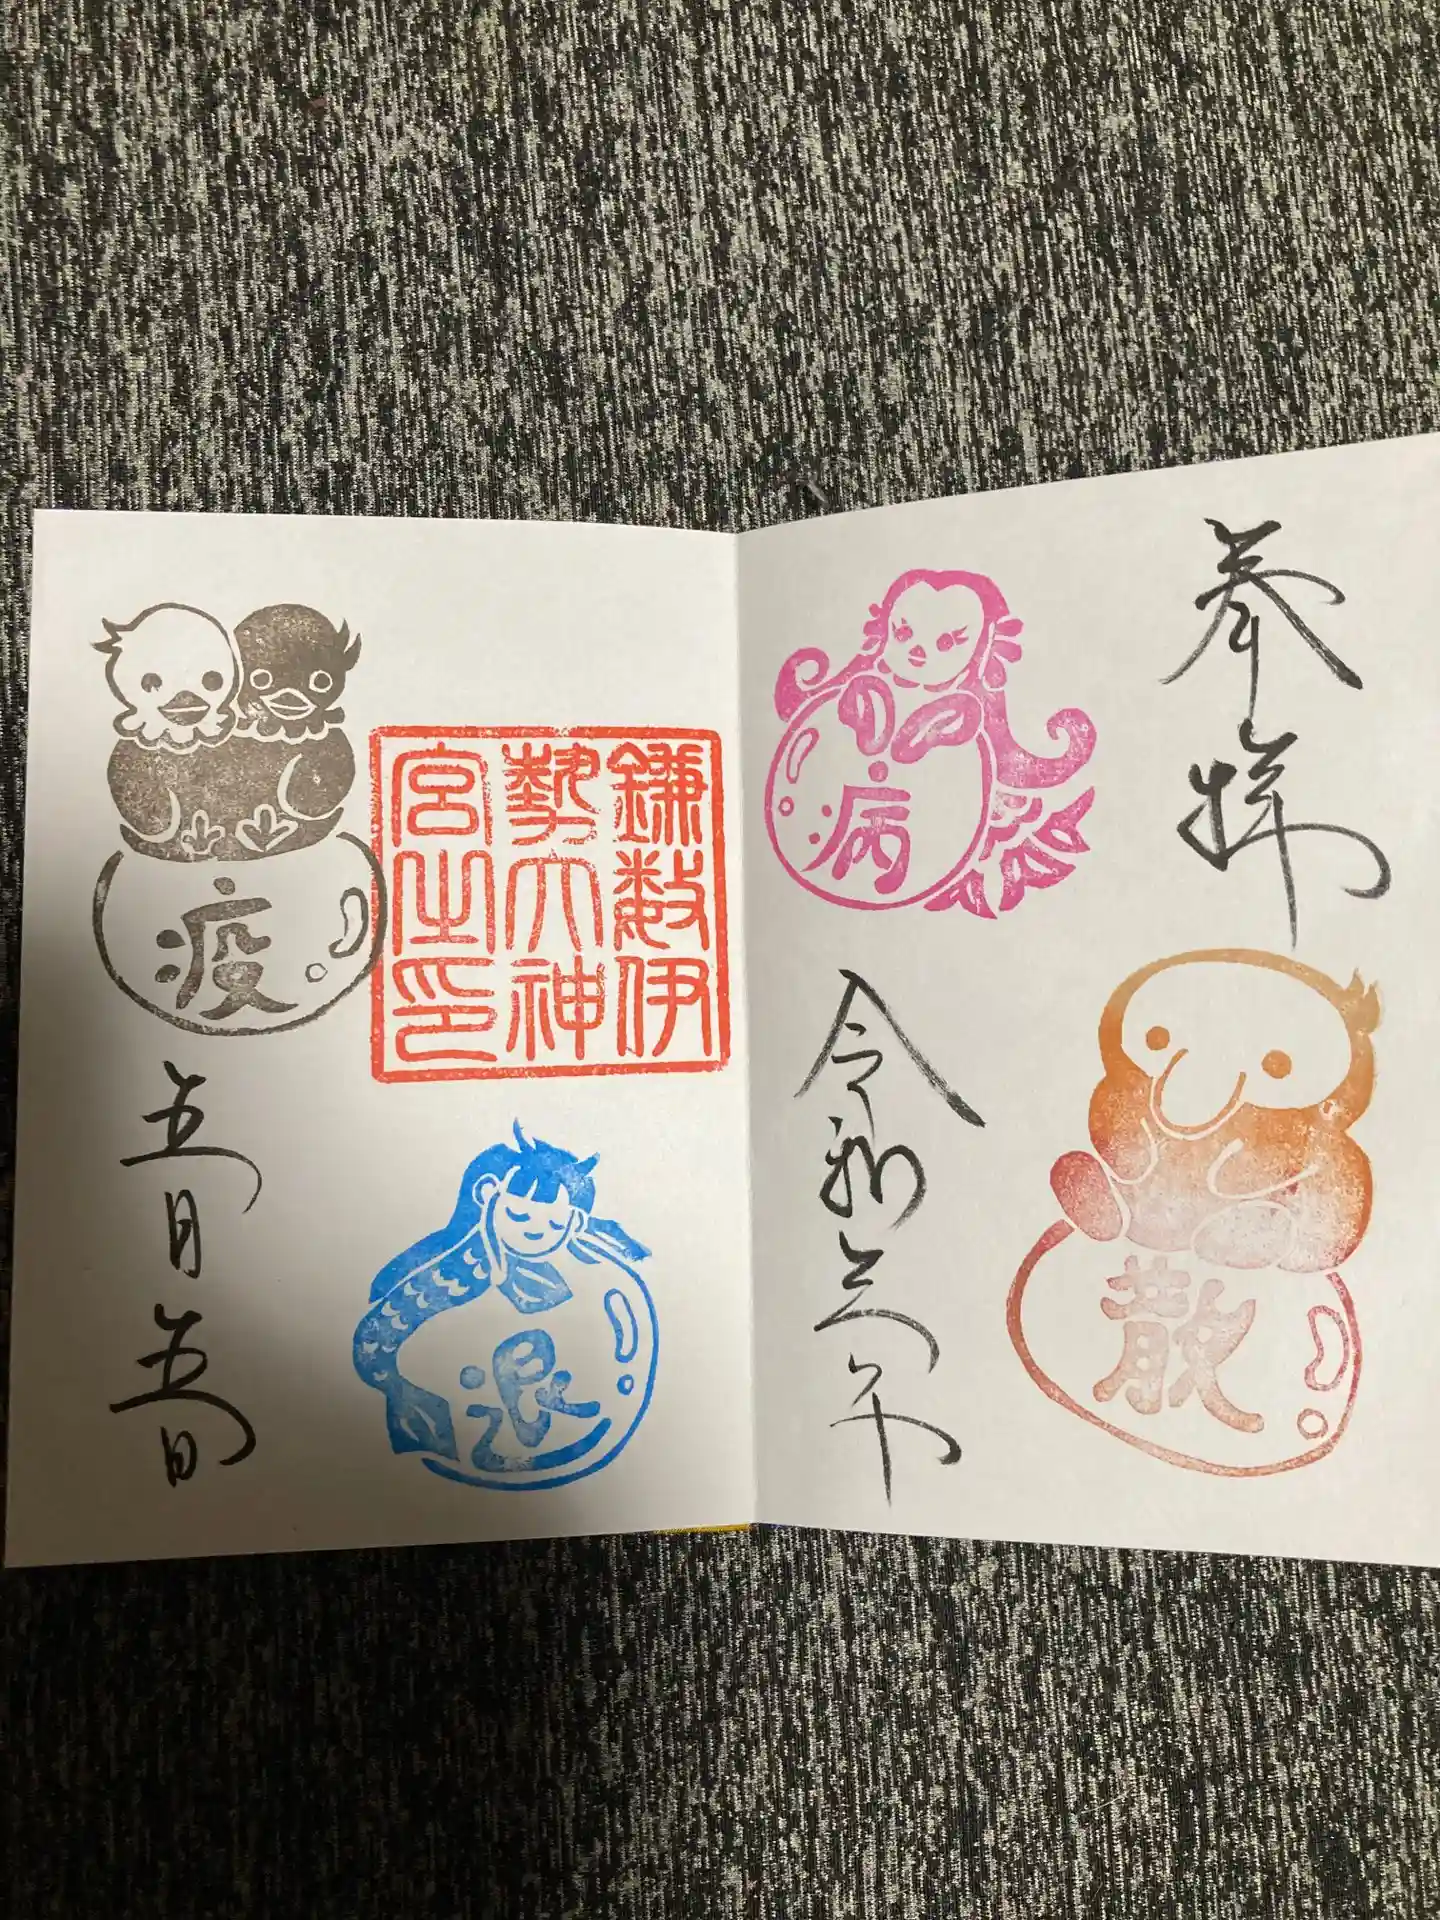 奉拝
病
散
令和三年
鎌数伊
勢大神
宮之印
疫
退
五月五日